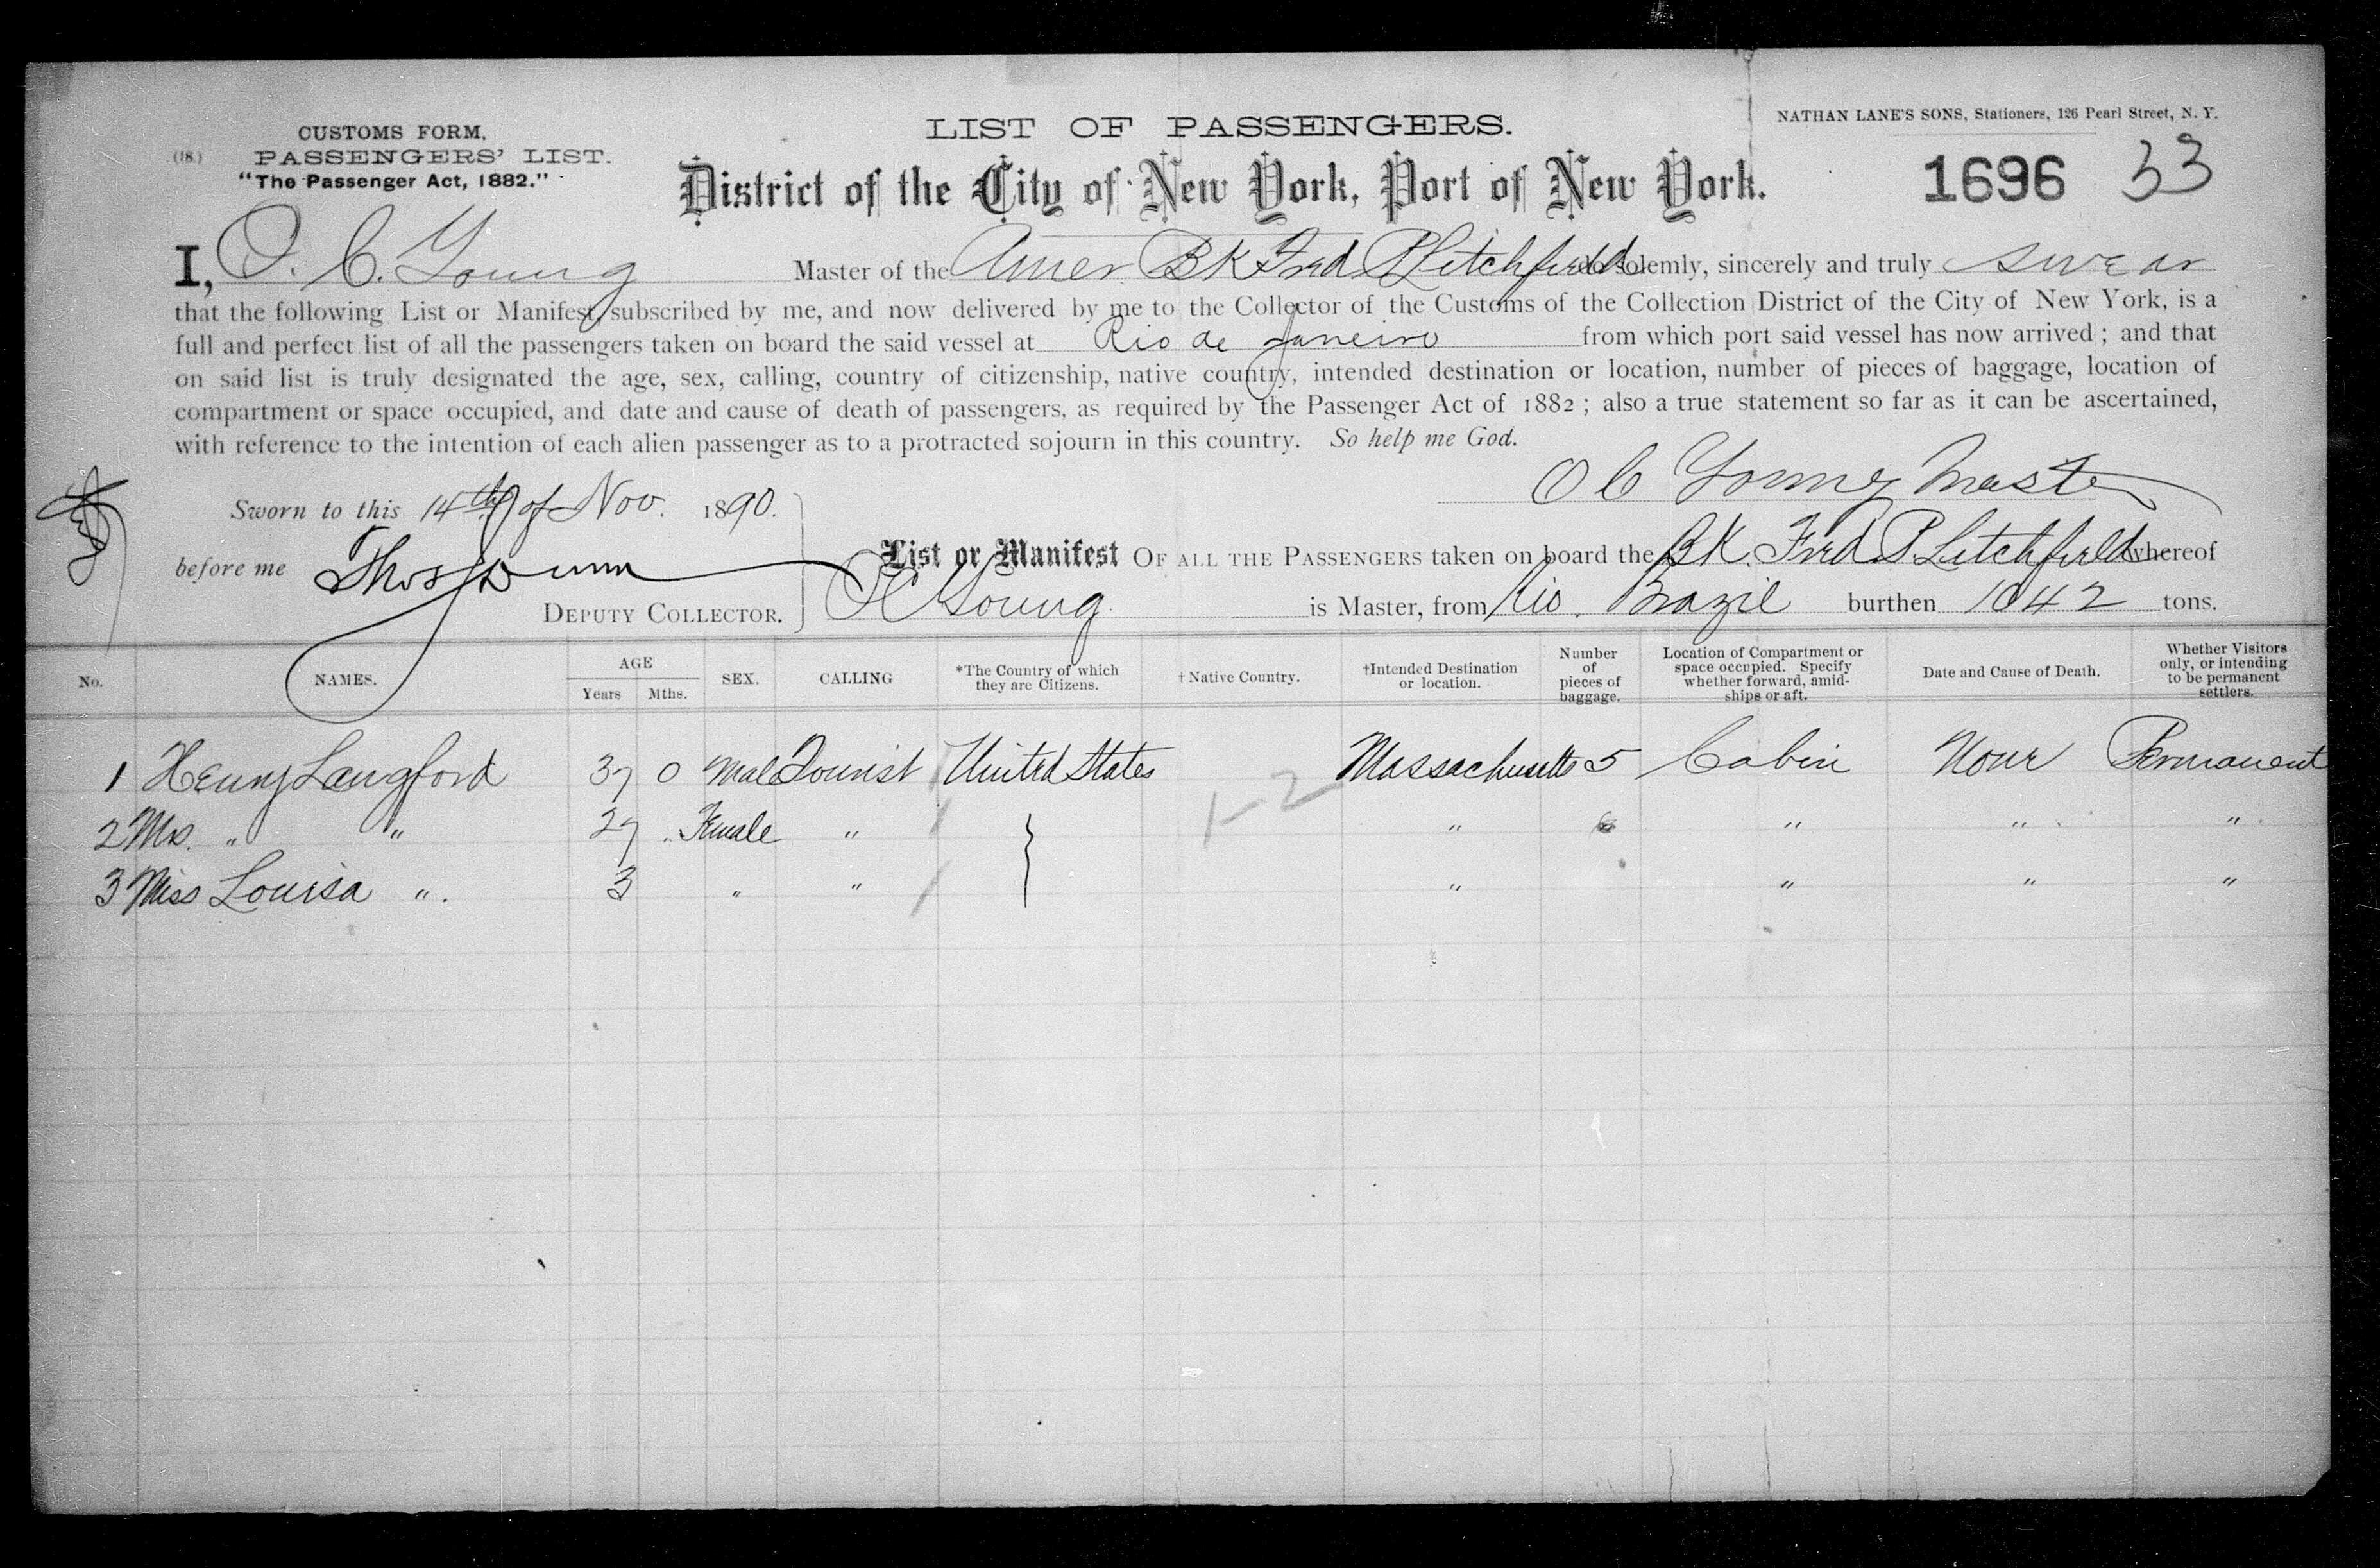 NATHAN LANE'S SONS, Stationers, 126 Pearl Street, N. Y.
(18.) CUSTOMS FORM.
PASSENGERS' LIST.
"The Passenger Act, 1882."
LIST OF PASSENGERS.
District of the City of New York, Port of New York.
1696 33
I, O. C. Young Master of the Amer. BK Fred P Litchfield do solemly, sincerely and truly swear
that the following List or Manifest, subscribed by me, and now delivered by me to the Collector of the Customs of the Collection District of the City of New York, is a
full and perfect list of all the passengers taken on board the said vessel at Rio de Janeiro from which port said vessel has now arrived ; and that
on said list is truly designated the age, sex, calling, country of citizenship, native country, intended destination or location, number of pieces of baggage, location of
compartment or space occupied, and date and cause of death of passengers, as required by the Passenger Act of 1882 ; also a true statement so far as it can be ascertained,
with reference to the intention of each alien passenger as to a protracted sojourn in this country. So help me God.
O C Young Master
Sworn to this 14th of Nov. 1890.
before me Thos Dunn
DEPUTY COLLECTOR.
List or Manifest OF ALL THE PASSENGERS taken on board the BK. Fred P. Litchfield whereof
O C Young is Master, from Rio. Brazil burthen 1042 tons.
No. NAMES. AGE Years Mths. SEX. CALLING *The Country of which they are Citizens. †Native Country. †Intended Destination or location. Number of pieces of baggage. Location of Compartment or space occupied. Specify whether forward, amid-ships or aft. Date and Cause of Death. Whether Visitors only, or intending to be permanent settlers.
1 Henry Langford 37 0 Male Tourist United States Massachusetts 5 Cabin None Permanent
2 Mrs. " " 27 . Female " } 1-2 " " " "
3 Miss Louisa ". 3 " " " " " "